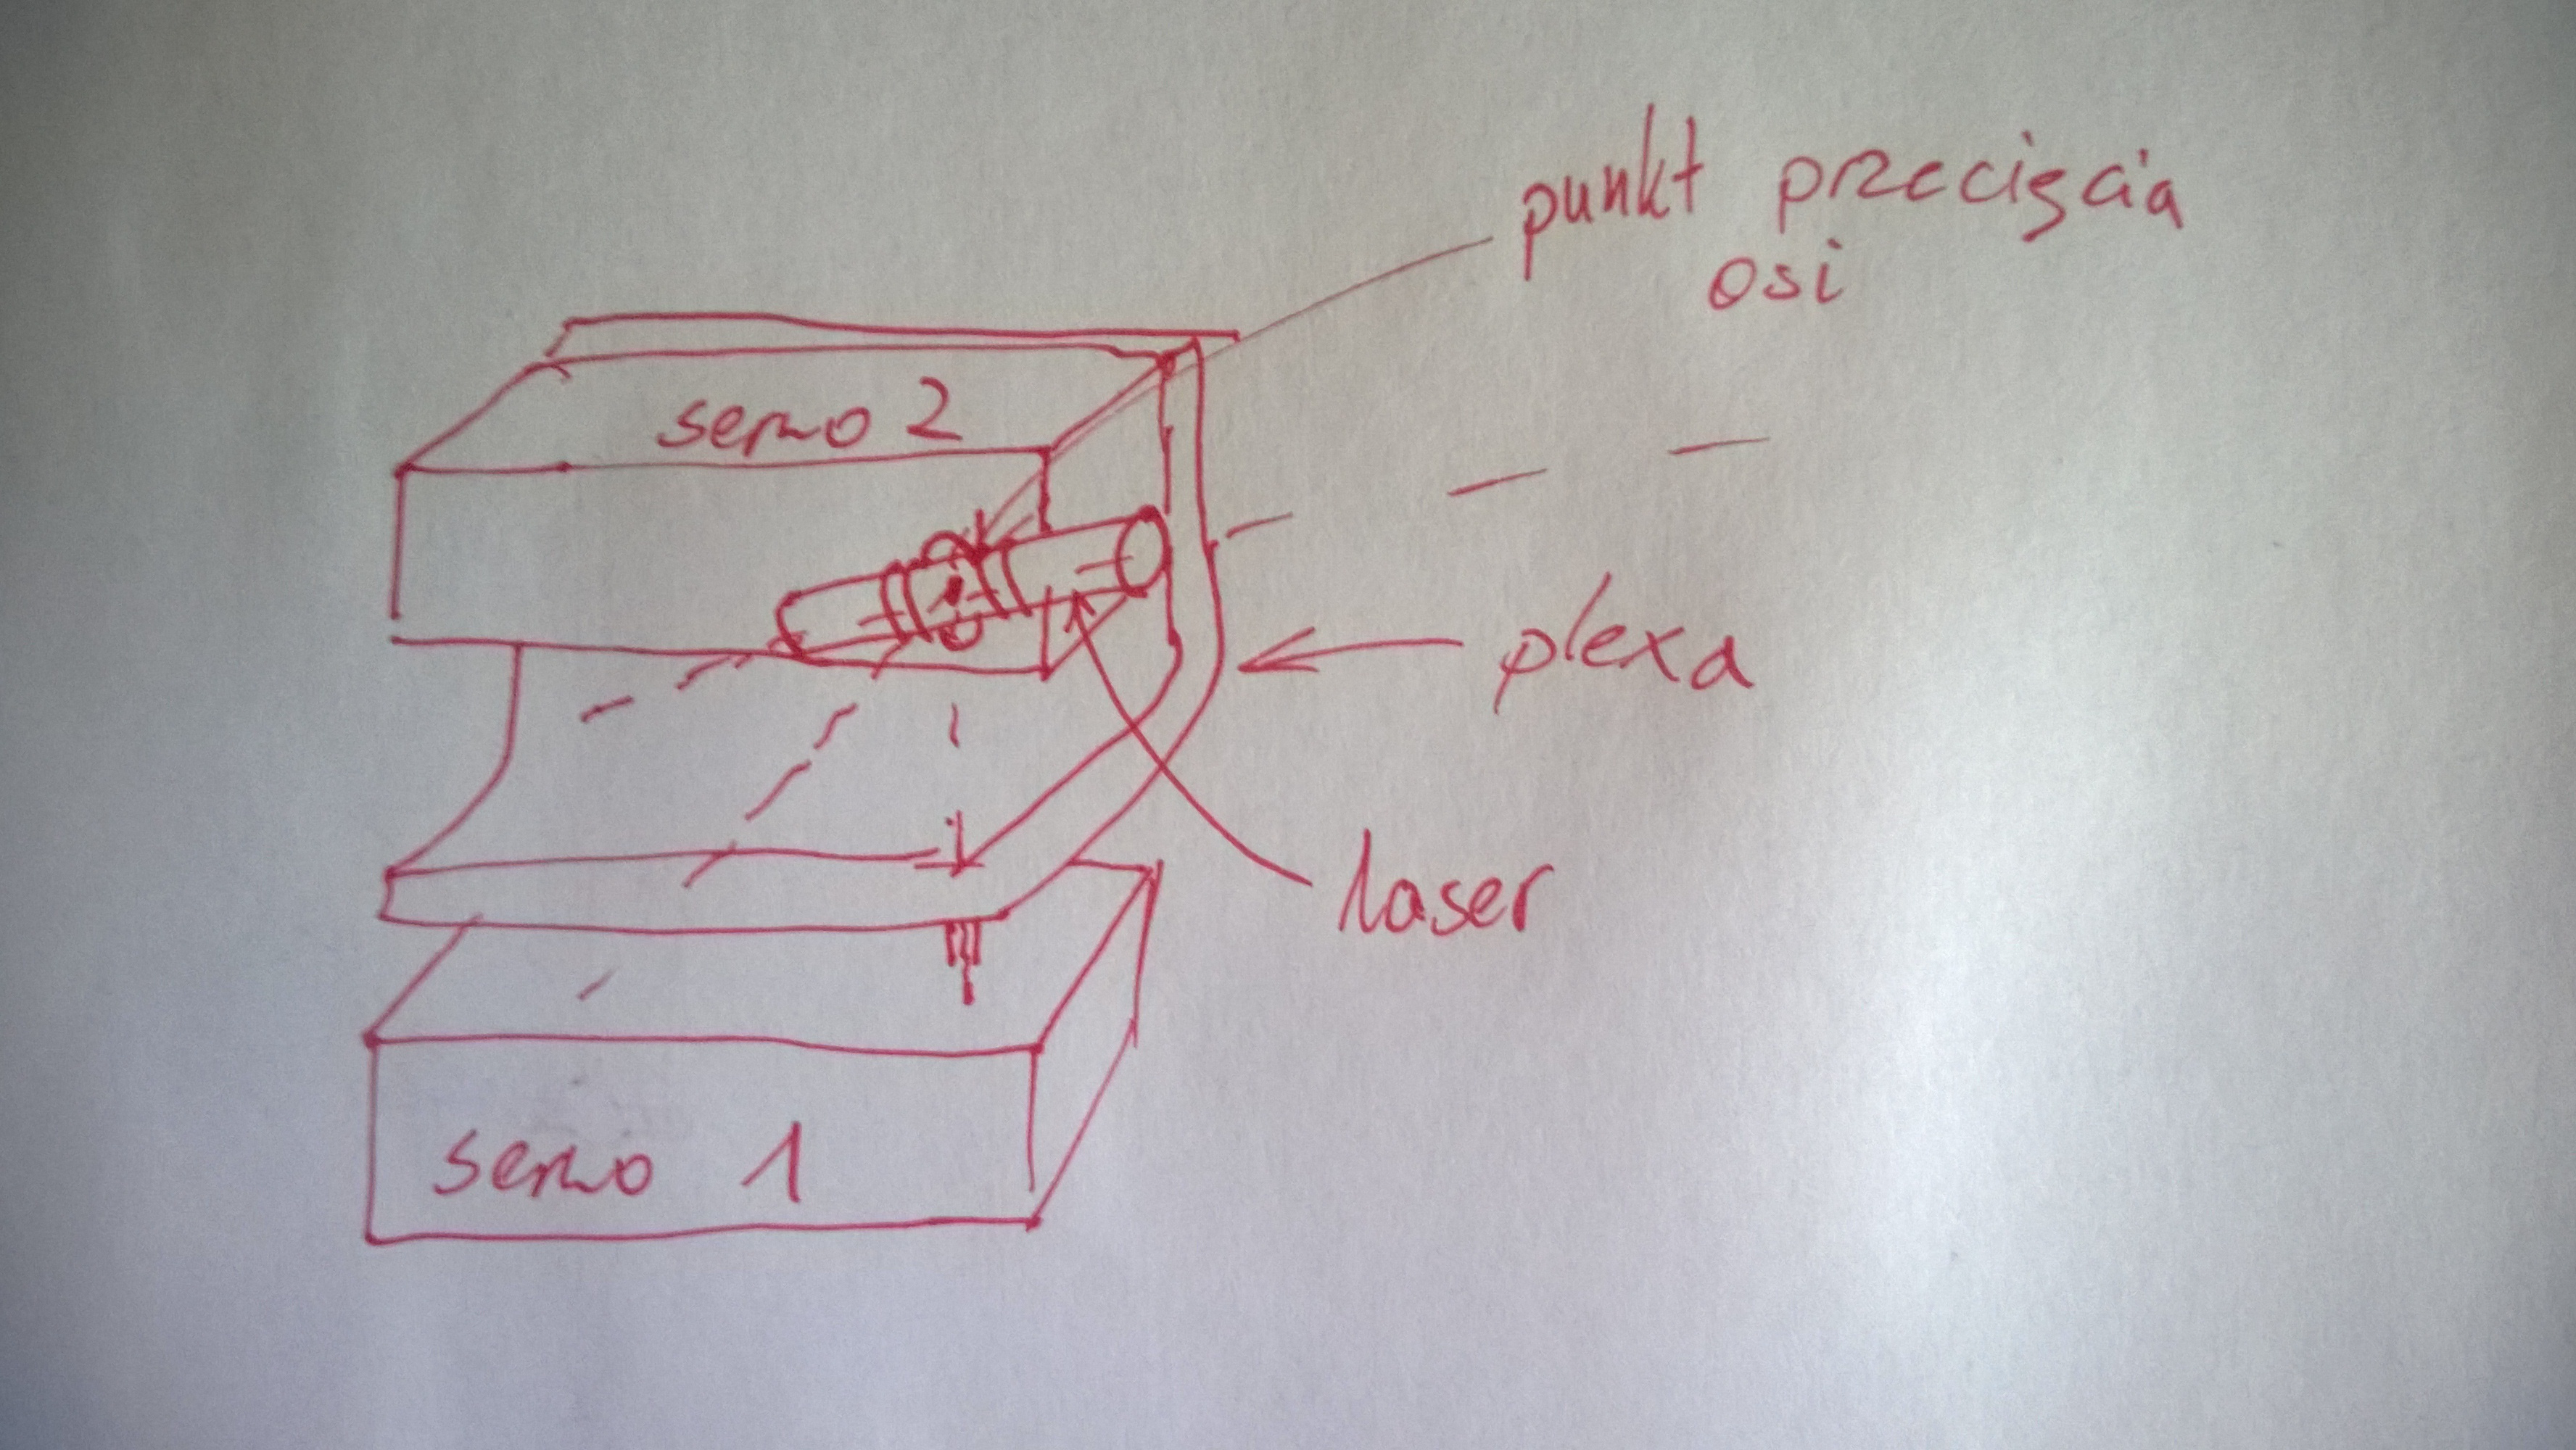 punkt przecięcia
osi
serwo 2
plexa
laser
serwo 1